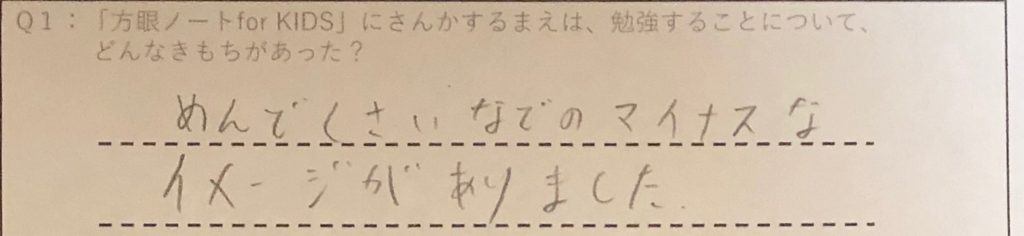 Q1：「方眼ノートfor KIDS」にさんかするまえは、勉強することについて、
どんなきもちがあった？
めんでくさいなでのマイナスな
イメージがありました.